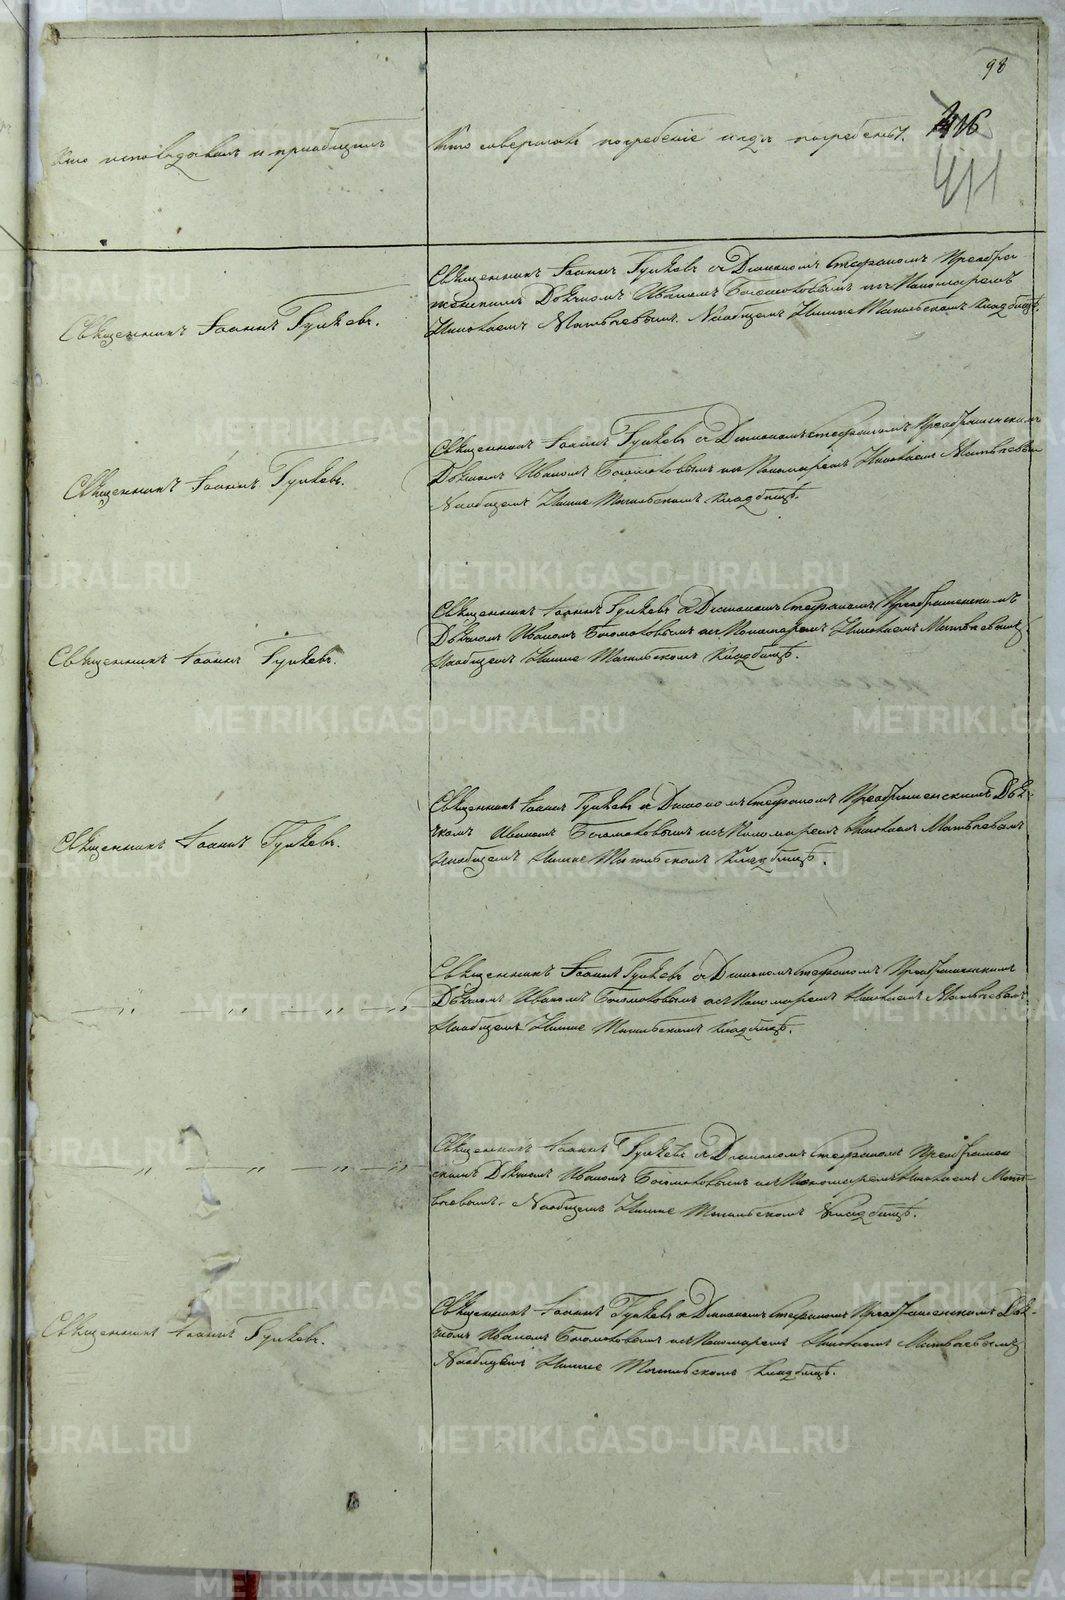 98
416
411
Кто исповѣдывалъ и приобщилъ
Кто совершалъ погребенiе и гдѣ погребены.
Священникъ Iоаннъ Гуляевъ.
Священникъ Iоаннъ Гуляевъ съ Дiакономъ Стефаномъ Преобра
женскимъ Дьячкомъ Иваномъ Богомоловымъ и съ Пономаремъ
Николаемъ Матвѣевымъ. На общемъ Нижне Тагильскомъ кладбищѣ.
Священникъ Iоаннъ Гуляевъ.
Священникъ Iоаннъ Гуляевъ съ Дiакономъ Стефаномъ Преображенскимъ
Дьячкомъ Иваномъ Богомоловымъ и съ Пономаремъ Николаемъ Матвѣевым
На общемъ Нижне Тагильскомъ кладбищѣ.
Священникъ Iоаннъ Гуляевъ.
Священникъ Iоаннъ Гуляевъ съ Дiакономъ Стефаномъ Преображенскимъ
Дьячкомъ Иваномъ Богомоловымъ и съ Пономаремъ Николаемъ Матвѣевымъ
На общемъ Нижне Тагильскомъ Кладбищѣ.
Священникъ Iоаннъ Гуляевъ.
Священникъ Iоаннъ Гуляевъ съ Дiакономъ Стефаномъ Преображенскимъ Дья-
чкомъ Иваномъ Богомоловымъ и съ Пономаремъ Николаемъ Матвѣевымъ
На общемъ Нижне Тагильскомъ Кладбищѣ.
— „ — „ — „ — „
Священникъ Iоаннъ Гуляевъ съ Дiакономъ Стефаномъ Преображенскимъ
Дьячкомъ Иваномъ Богомоловымъ и съ Пономаремъ Николаемъ Матвѣевымъ
На общемъ Нижне Тагильскомъ кладбищѣ.
— „ — „ — „ — „
Священникъ Iоаннъ Гуляевъ съ Дiакономъ Стефаномъ Преображен
скимъ Дьячкомъ Иваномъ Богомоловымъ и съ Пономаремъ Николаемъ Мат-
вѣевымъ. На общемъ Нижне Тагильскомъ Кладбищѣ.
Священникъ Iоаннъ Гуляевъ.
Священникъ Iоаннъ Гуляевъ съ Дiакономъ Стефаномъ Преображенскимъ Дья-
чкомъ Иваномъ Богомоловымъ и съ Пономаремъ Николаемъ Матвѣевымъ
На общемъ Нижне Тагильскомъ кладбищѣ.
METRIKI.GASO-URAL.RU